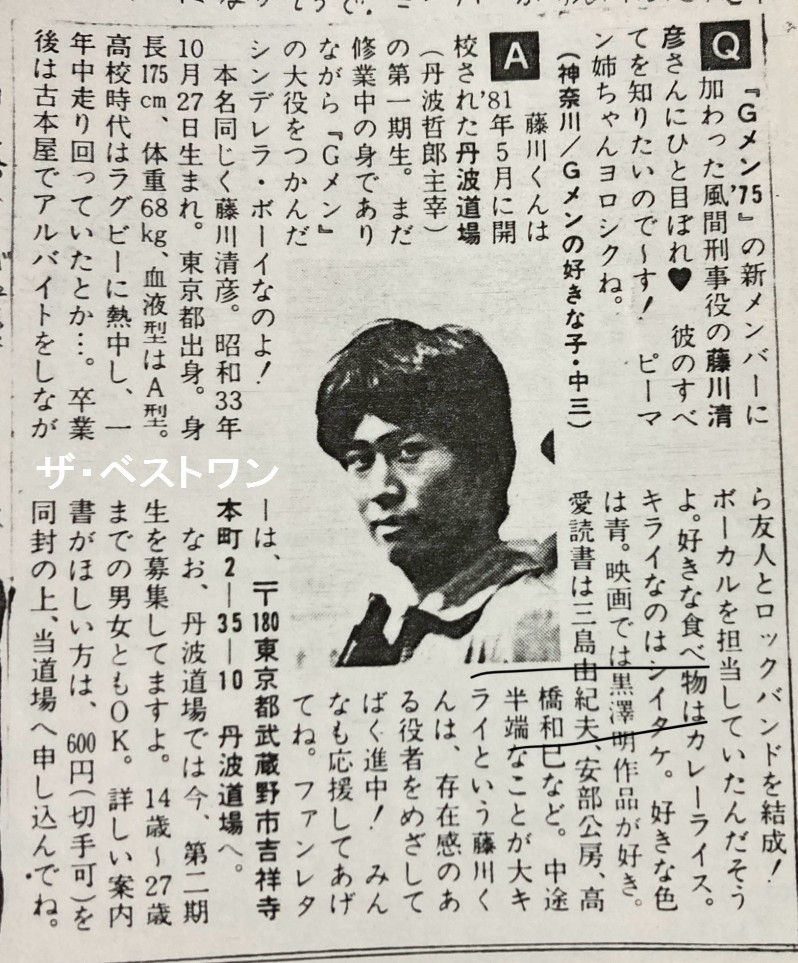 Q 『Gメン'75』の新メンバーに
加わった風間刑事役の藤川清
彦さんにひと目ぼれ♥　彼のすべ
てを知りたいので〜す！　ピーマ
ン姉ちゃんヨロシクね。
（神奈川／Gメンの好きな子・中三）
A 藤川くんは
'81年5月に開
校された丹波道場
（丹波哲郎主宰）
の第一期生。まだ
修業中の身であり
ながら『Gメン』
の大役をつかんだ
シンデレラ・ボーイなのよ！
本名同じく藤川清彦。昭和33年
10月27日生まれ。東京都出身。身
長175cm、体重68kg、血液型はA型。
高校時代はラグビーに熱中し、一
年中走り回っていたとか…。卒業
後は古本屋でアルバイトをしなが
ら友人とロックバンドを結成！
ボーカルを担当していたんだそう
よ。好きな食べ物はカレーライス。
キライなのはシイタケ。好きな色
は青。映画では黒澤明作品が好き。
愛読書は三島由紀夫、安部公房、高
橋和巳など。中途
半端なことが大キ
ライという藤川く
んは、存在感のあ
る役者をめざして
ばく進中！　みん
なも応援してあげ
てね。ファンレタ
ーは、〒180東京都武蔵野市吉祥寺
本町2―35―10　丹波道場へ。
なお、丹波道場では今、第二期
生を募集してますよ。14歳〜27歳
までの男女ともOK。詳しい案内
書がほしい方は、600円(切手可)を
同封の上、当道場へ申し込んでね。
ザ・ベストワン